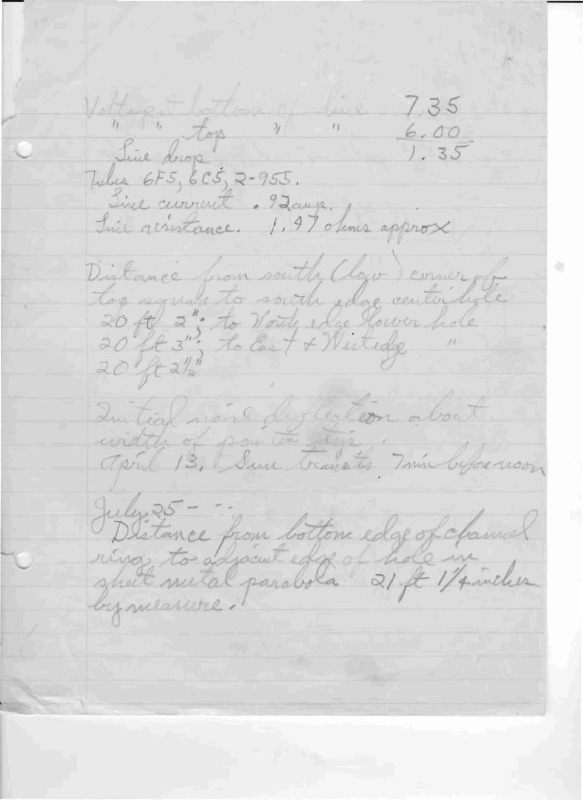 Voltage at bottom of line 7.35
" " top " " 6.00
Line drop 1.35
Tubes 6F5, 6C5, 2-955.
Line current .92 amp.
Line resistance. 1.47 ohms approx
Distance from south (low) corner of
top square to south edge center hole
20 ft 2"; to North edge lower hole
20 ft 3"; to East & West edge "
20 ft 2½"
Initial noise deflection about
width of pointer tip.
April 13, Sun transits 7 min before noon
July 25 - - -
Distance from bottom edge of channel
ring to adjacent edge of hole in
sheet metal parabola 21 ft 1¼ inches
by measure.